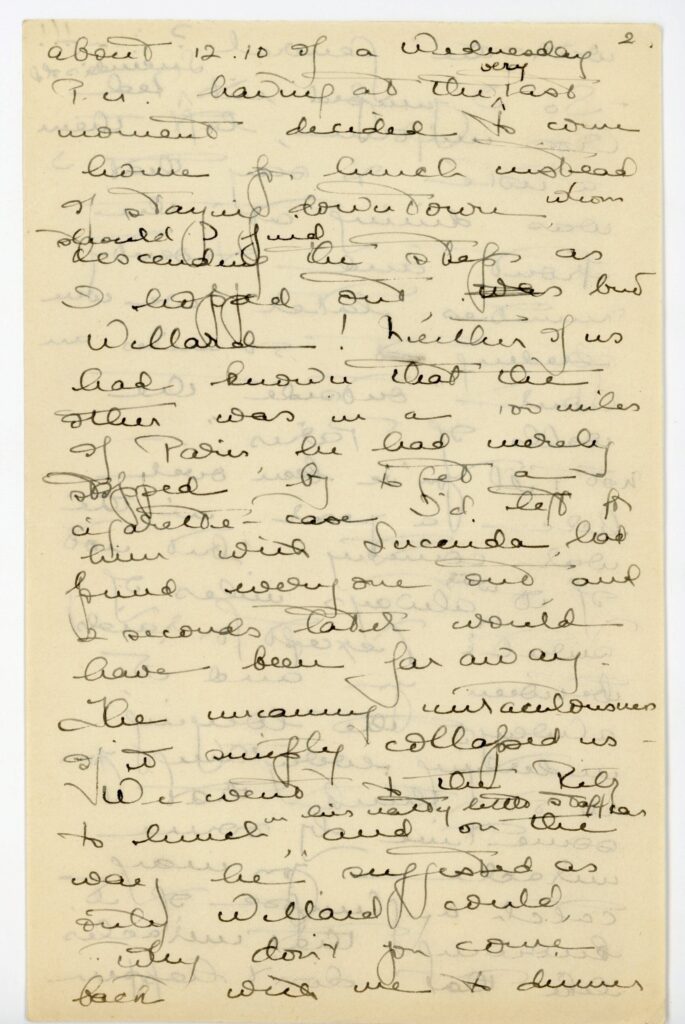 2.
about 12.10 of a Wednesday
P.M. having at the very last
moment decided to come
home for lunch instead
of staying downtown, whom
should I find
descending the steps as
I hopped out was but
Willard! Neither of us
had known that the
other was in a 100 miles
of Paris, he had merely
stopped by to get a
cigarette-case I'd left for
him with Lucenda, had
found everyone out and
2 seconds later would
have been far away.
The uncanny miraculousness
of it simply collapsed us -
We went to the Ritz
in his natty little staff car
to lunch, and on the
way he suggested as
only Willard could,
"Why don't you come
back with me to dinner